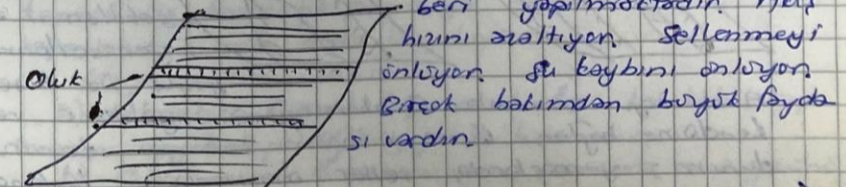 beri yapılmaktadır.
hızını azaltıyor. Sellenmeyi
önlüyor. Su kaybını önlüyor
Birçok bakımdan büyük fayda
sı vardır.
Oluk